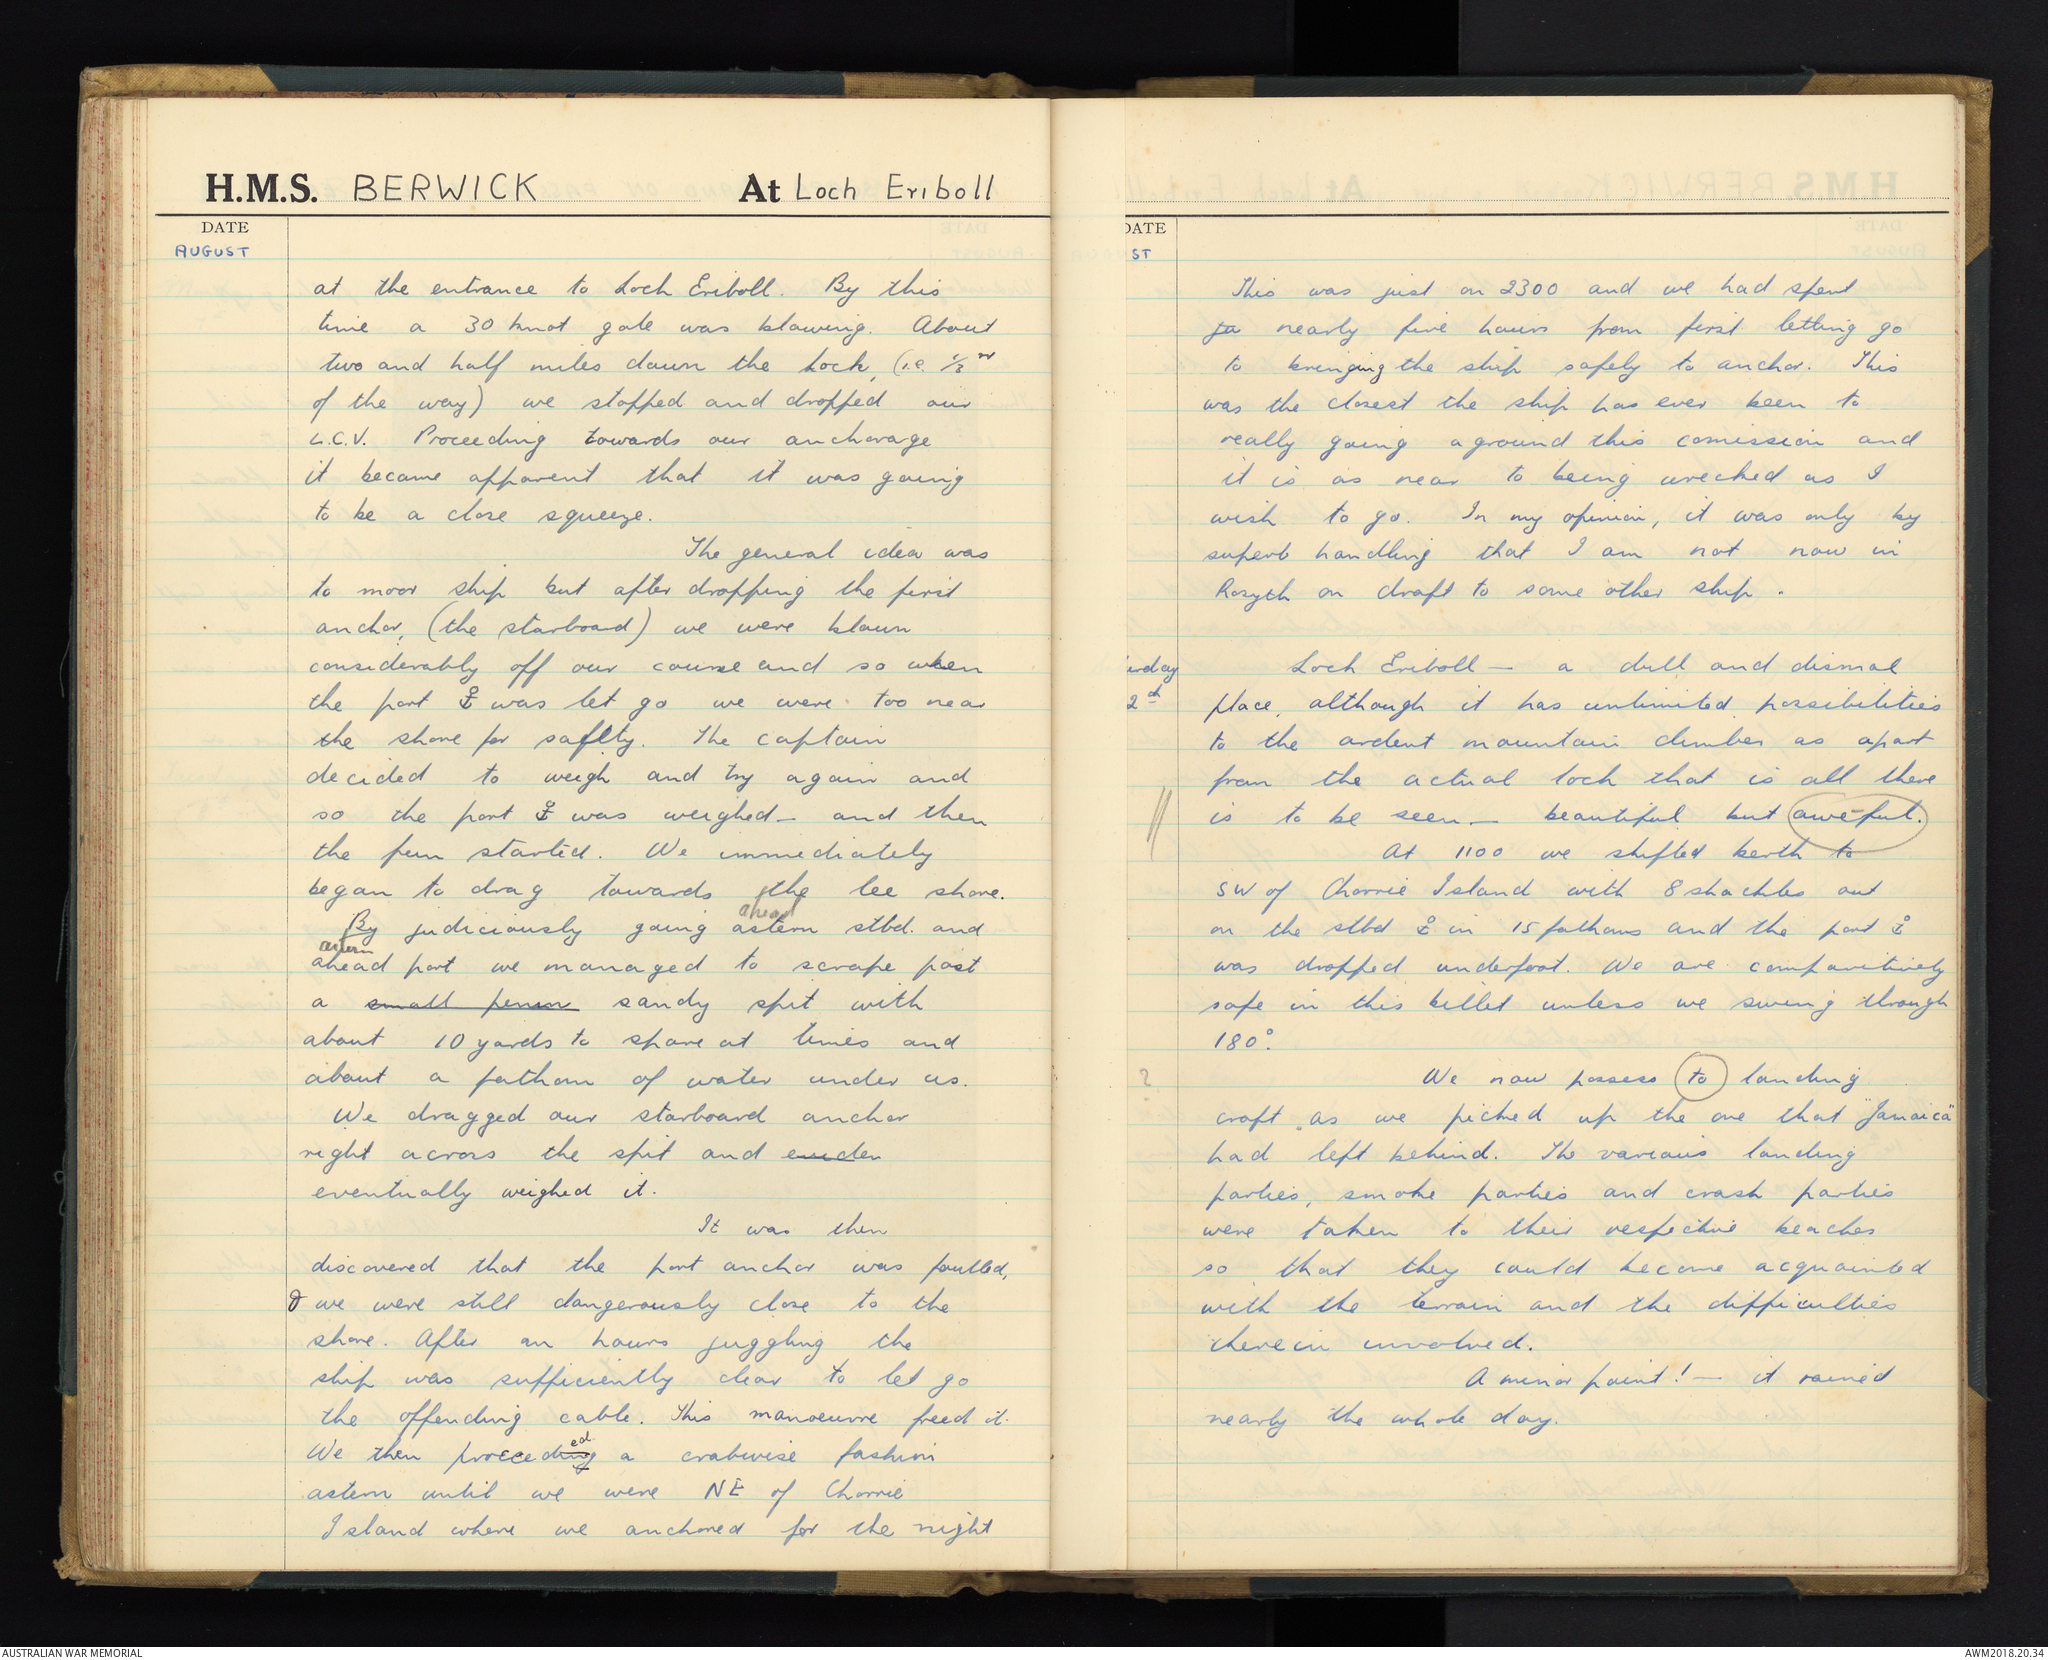 H.M.S. BERWICK At Loch Eriboll
DATE
AUGUST
at the entrance to Loch Eriboll. By this
time a 30 knot gale was blowing. About
two and half miles down the Lock, (i.e. 1/3
of the way) we stopped and dropped our
L.C.V. Proceeding towards our anchorage
it became apparent that it was going
to be a close squeeze.
The general idea was
to moor ship but after dropping the first
anchor, (the starboard) we were blown
considerably off our course and so when
the port ⚓ was let go we were too near
the shore for saftety. The captain
decided to weigh and try again and
so the port ⚓ was weighed - and then
the fun started. We immediately
began to drag towards the lee shore.
ahead
By judiciously going astern stbd. and
astern
ahead port we managed to scrape past
a small penin sandy spit with
about 10 yards to spare at times and
about a fathom of water under us.
We dragged our starboard anchor
right across the spit and
eventually weighed it.
It was then
discovered that the port anchor was foulled,
& we were still dangerously close to the
shore. After an hours juggling the
ship was sufficiently clear to let go
the offending cable. This manoeuvre freed it.
ed
We then proceeding a crabwise fashion
astern until we were NE of Chorrie
Island where we anchored for the night
DATE
ST
This was just on 2300 and we had spent
ju nearly five hours from first letting go
to bringing the ship safely to anchor. This
was the closest the ship has ever been to
really going aground this comission and
it is as near to being wrecked as I
wish to go. In my opinion, it was only by
superb handling that I am not now in
Rosyth on draft to some other ship.
urday Loch Eriboll - a dull and dismal
2th place, although it has unlimited possibilities
to the ardent mountain climber as apart
from the actual loch that is all there
is to be seen - beautiful but awe-ful.
At 1100 we shifted berth to
SW of Chorrie Island with 8 shackles out
on the stbd ⚓ in 15 fathoms and the port ⚓
was dropped underfoot. We are comparitively
safe in this billet unless we swing through
180°.
? We now possess to landing
craft as we picked up the one that "Jamaica"
had left behind. The various landing
parties, smoke parties and crash parties
were taken to their respective beaches
so that they could become acquainted
with the terrain and the difficulties
therein involved.
A minor point! - it rained
nearly the whole day.
AUSTRALIAN WAR MEMORIAL
AWM2018.20.34